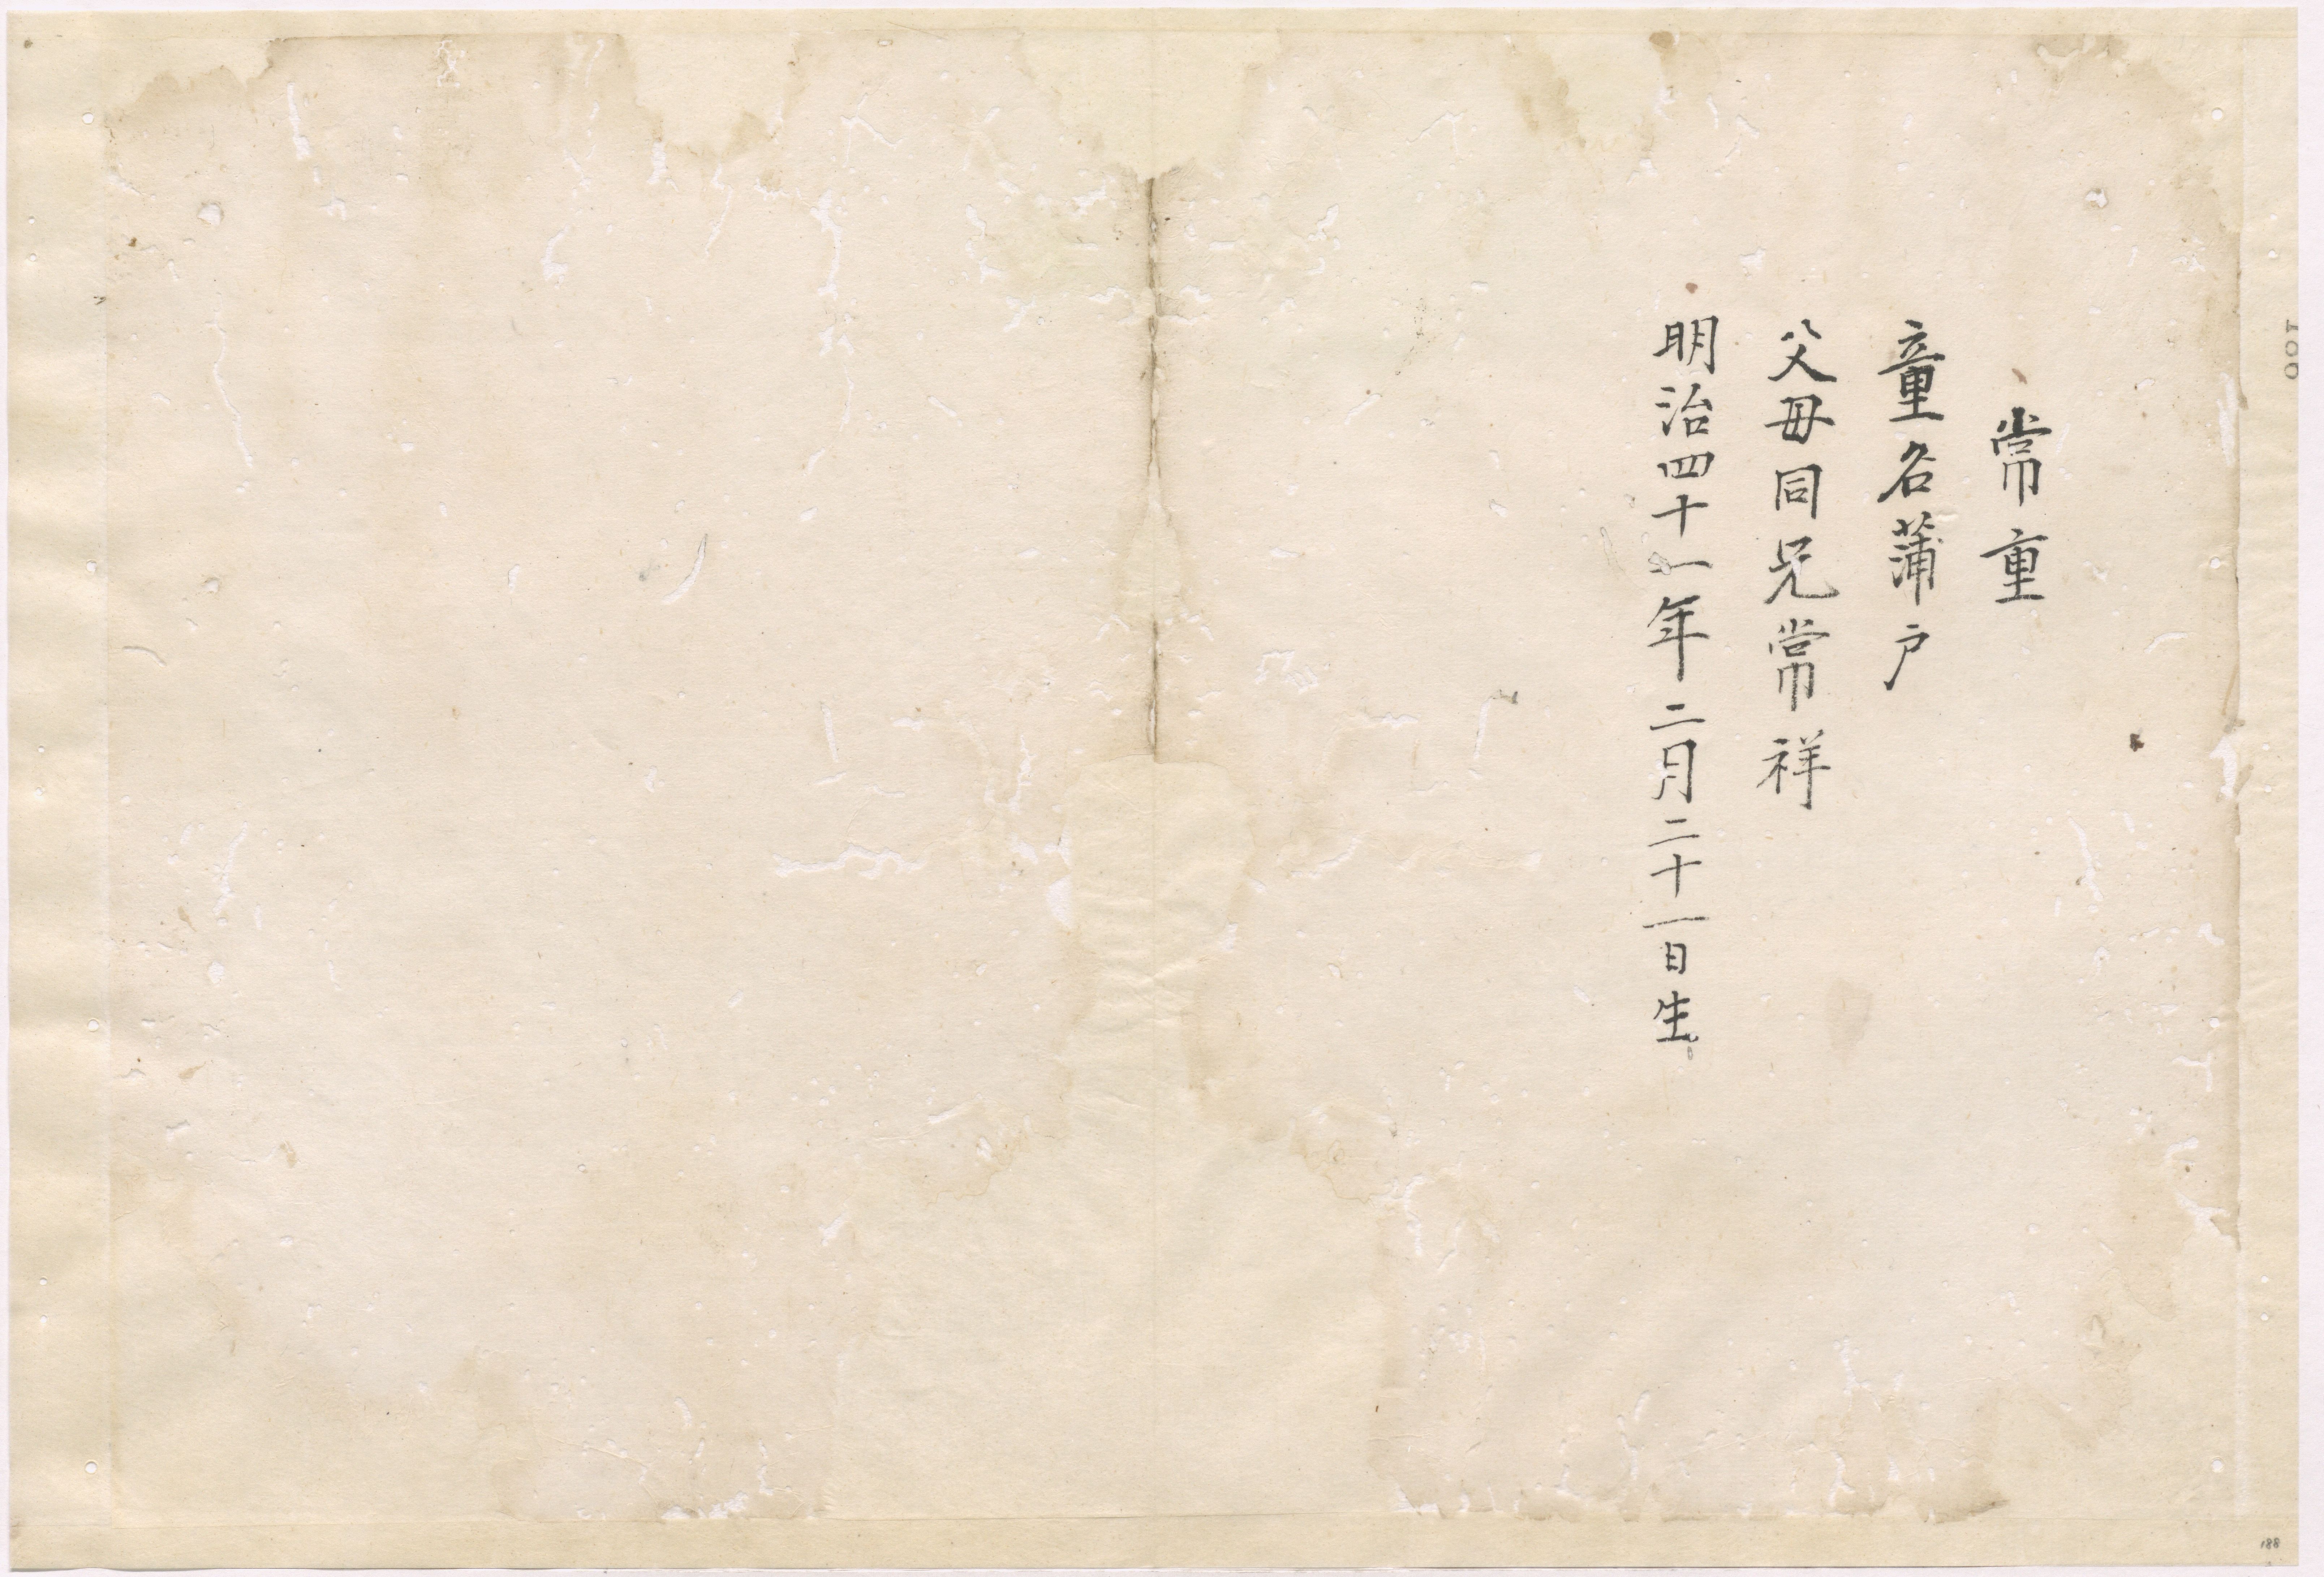 常重
童名蒲戸
父母同兄常祥
明治四十一年二月二十一日生
188